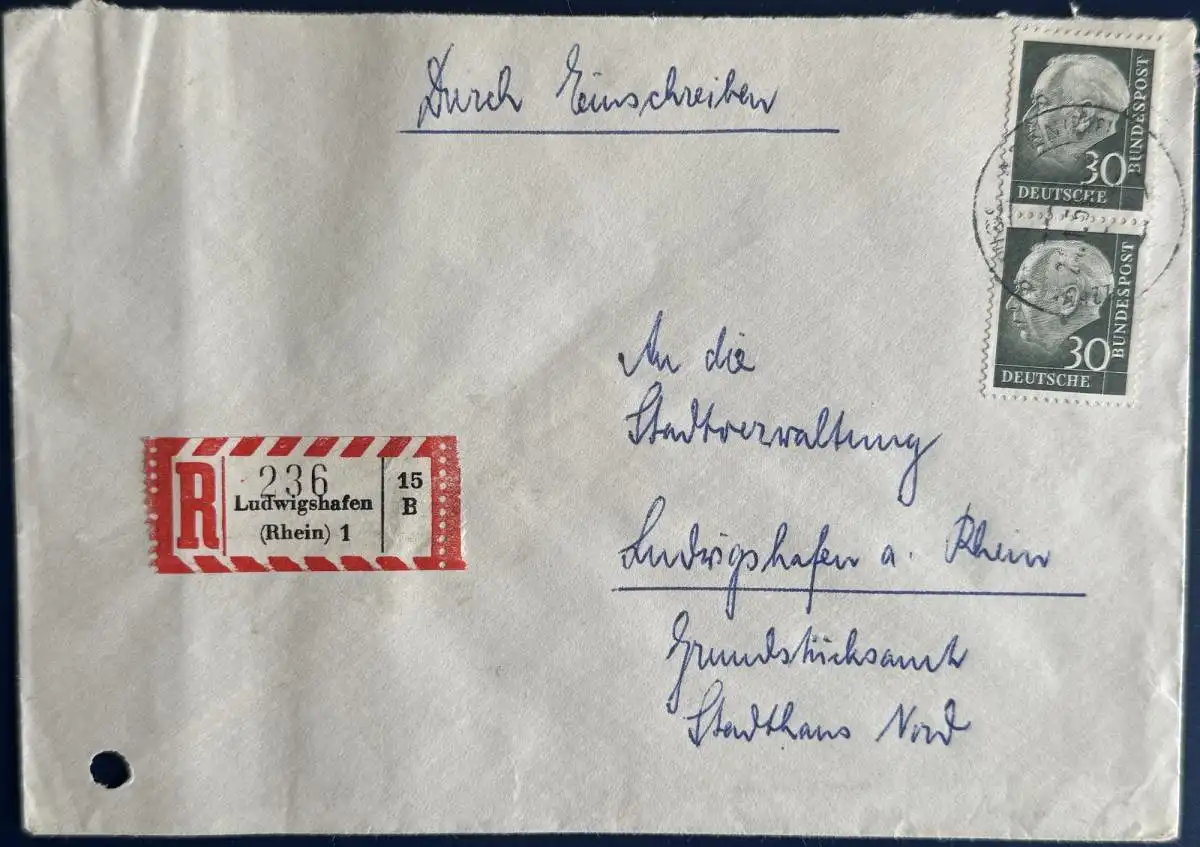 Durch Einschreiben
30
BUNDESPOST
DEUTSCHE
30
BUNDESPOST
DEUTSCHE
R
236
Ludwigshafen
(Rhein) 1
15
B
An die
Stadtverwaltung
Ludwigshafen a. Rhein
Grundstücksamt
Stadthaus Nord